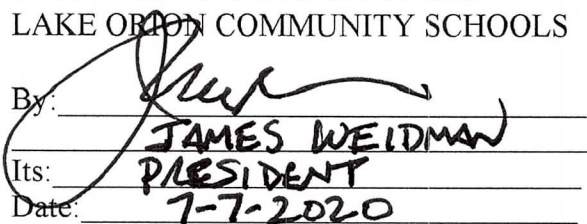 LAKE ORION COMMUNITY SCHOOLS
By:
JAMES WEIDMAN
Its: PRESIDENT
Date: 7-7-2020